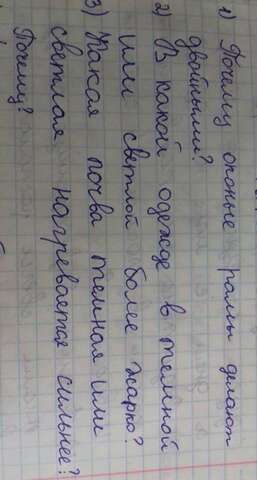 1) Почему оконные рамы делают
двойными?
2) В какой одежде в темной
или светлой более жарко?
3) Какая почва темная или
светлая нагревается сильнее?
Почему?